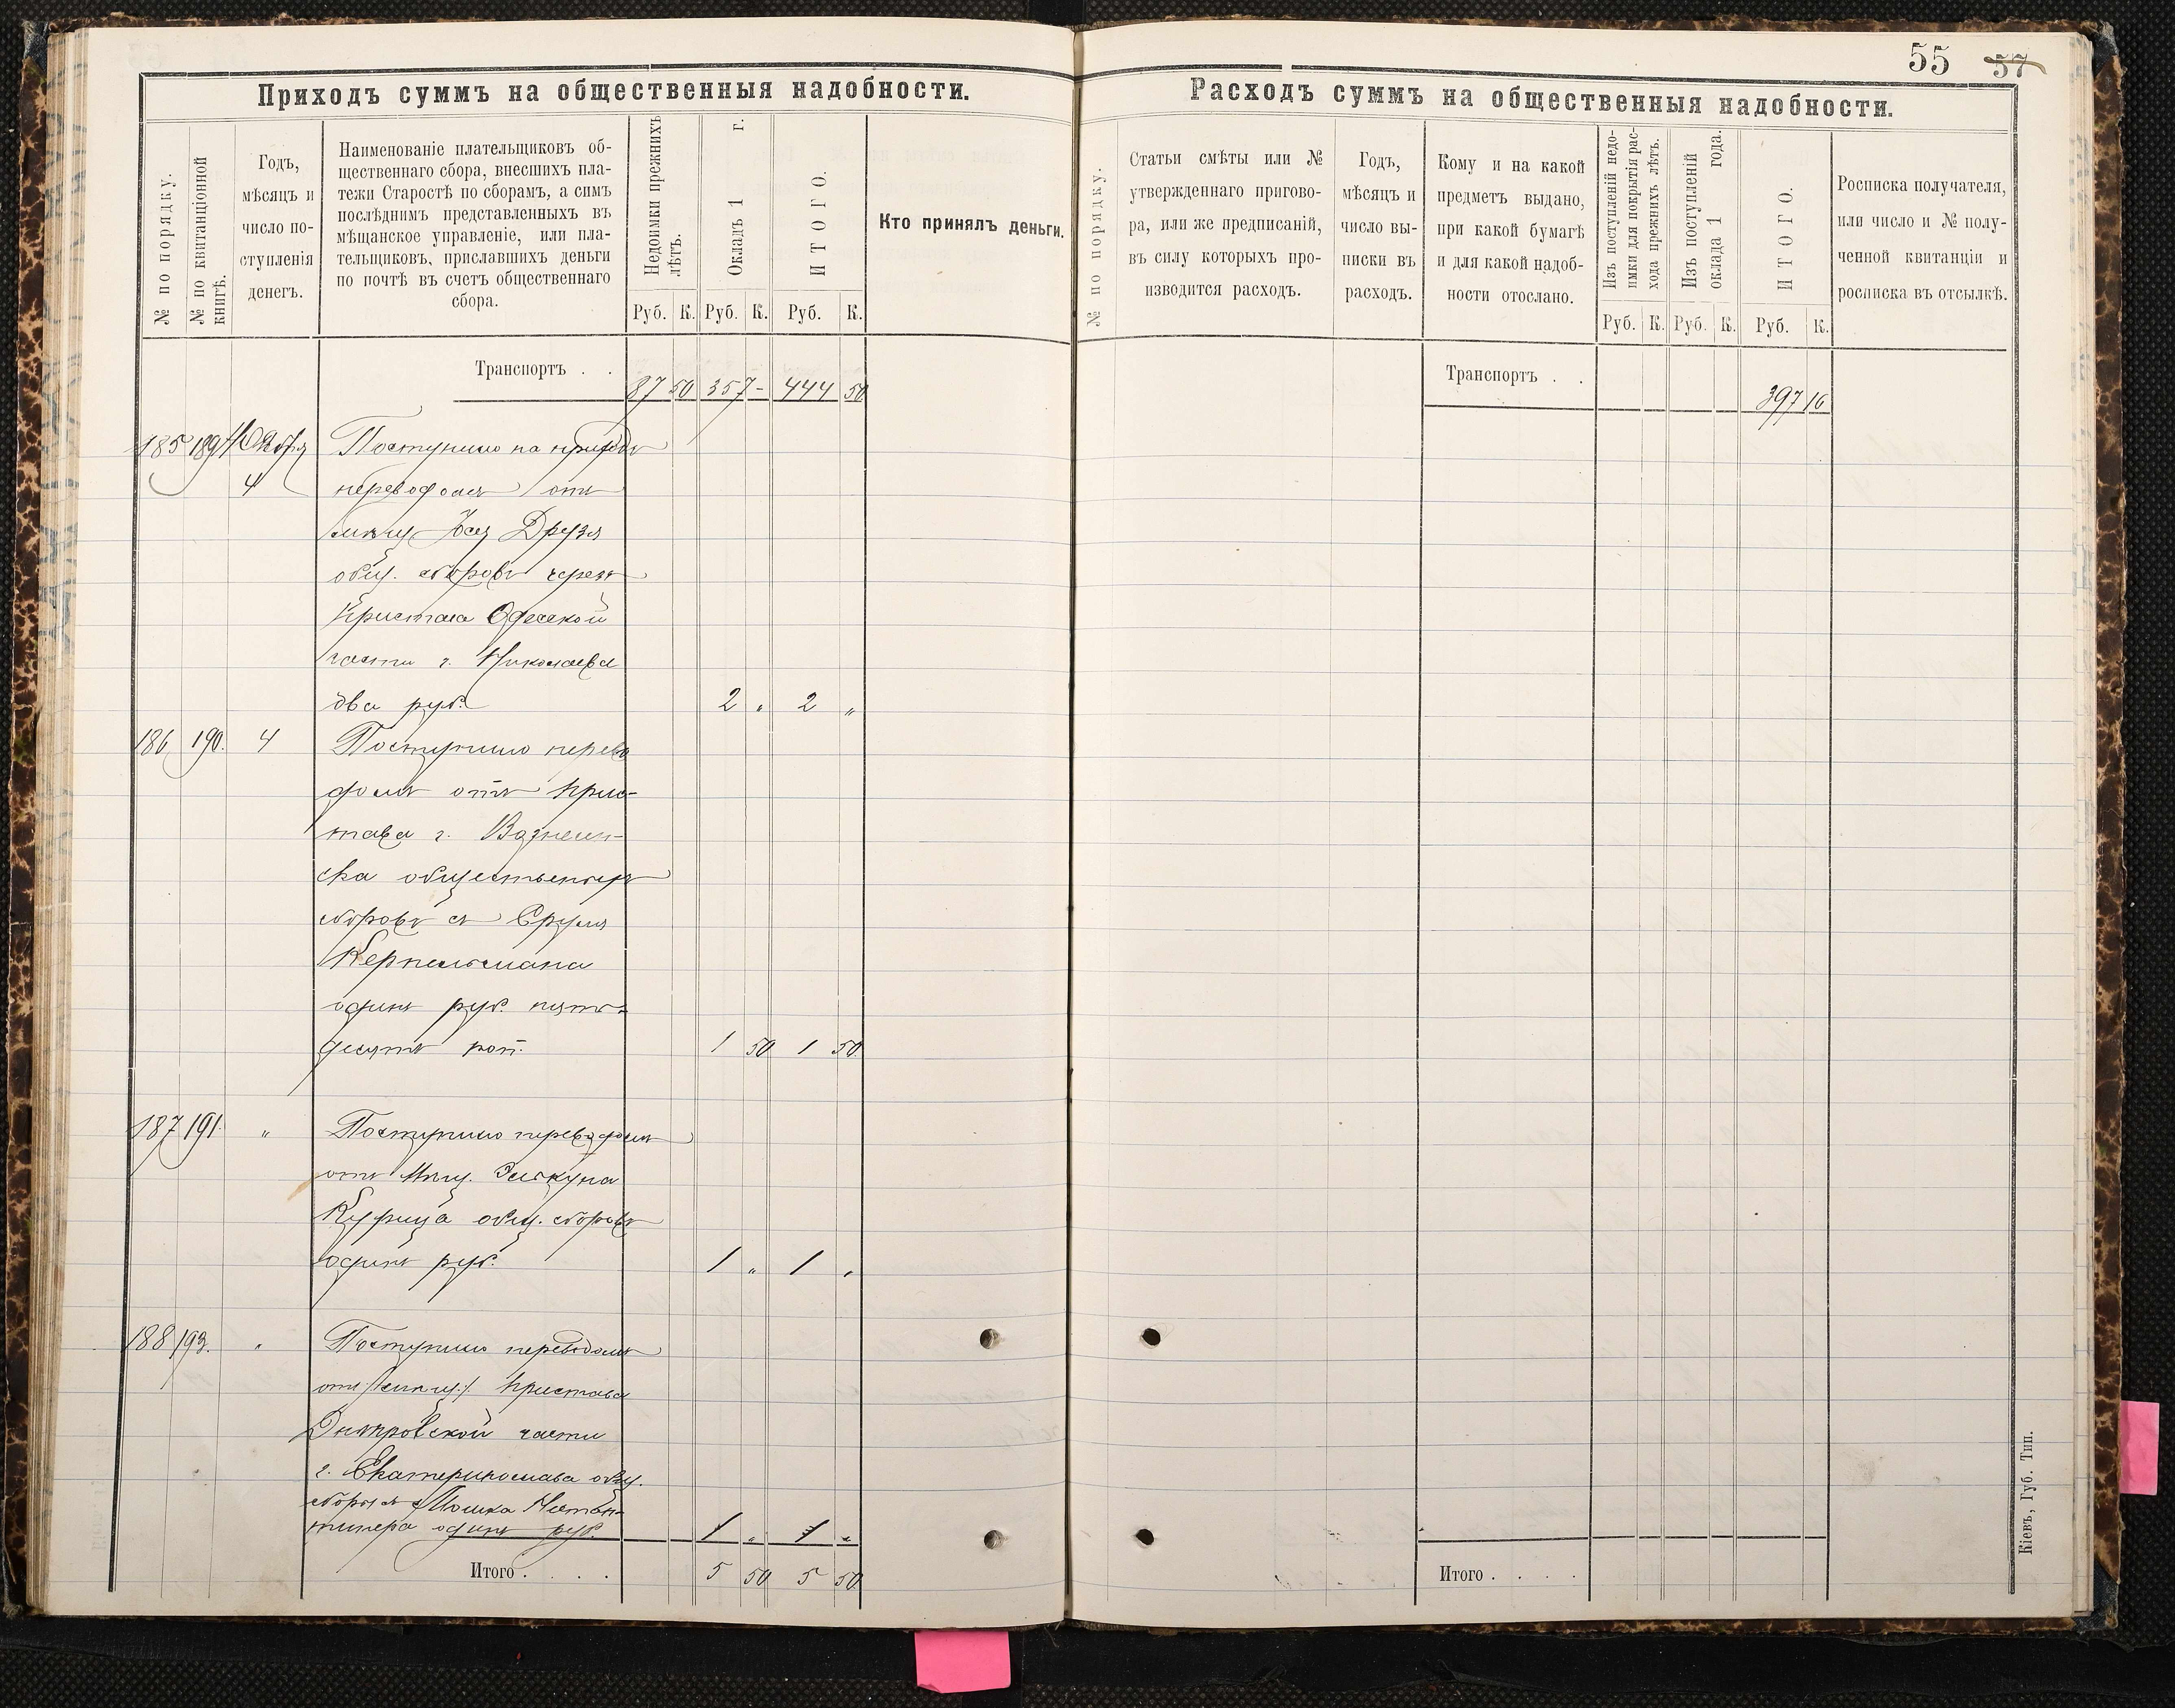 55 57
Приходъ суммъ на общественныя надобности.
№ по порядку.
№ по квитанціонной
книгѣ.
Годъ,
мѣсяцъ и
число по-
ступленія
денегъ.
Наименованіе плательщиковъ об-
щественнаго сбора, внесшихъ пла-
тежи Старостѣ по сборамъ, а симъ
послѣднимъ представленныхъ въ
мѣщанское управленіе, или пла-
тельщиковъ, приславшихъ деньги
по почтѣ въ счетъ общественнаго
сбора.
Недоимки прежнихъ
лѣтъ.
Окладъ 1 г.
ИТОГО.
Руб. К. Руб. К. Руб. К.
Кто принялъ деньги.
Транспортъ . . 87 50 357 - 444 50
185 189 Октбря Поступило на приходъ
4 переводомъ отъ
мѣщ. Друзя
общ. сборовъ черезъ
Пристава Одесской
части г. Николаева
два руб. 2 " 2 "
186 190. 4 Поступило перево
домъ отъ Прис-
тава г. Вознесен-
ска общественныхъ
сборовъ съ Сруля
Керпельмана
одинъ руб. пять-
десятъ коп. 1 50 1 50
187 191. " Поступило переводомъ
отъ Мѣщ. Зелькуна
Курица общ. сборовъ
одинъ руб. 1 " 1 "
188 193. " Поступило переводомъ
отъ Пристава
Днѣпровской части
г. Екатеринослава общ.
сборовъ Мошка
одинъ руб. 1 " 1 "
Итого . . . . 5 50 5 50
Расходъ суммъ на общественныя надобности.
№ по порядку.
Статьи смѣты или №
утвержденнаго пригово-
ра, или же предписаній,
въ силу которыхъ про-
изводится расходъ.
Годъ,
мѣсяцъ и
число вы-
писки въ
расходъ.
Кому и на какой
предметъ выдано,
при какой бумагѣ
и для какой надоб-
ности отослано.
Изъ поступленій недо-
имки для покрытія рас-
хода прежнихъ лѣтъ.
Изъ поступленій
оклада 1 года.
ИТОГО.
Руб. К. Руб. К. Руб. К.
Росписка получателя,
или число и № полу-
ченной квитанціи и
росписка въ отсылкѣ.
Транспортъ . . 397 16
Итого . . . .
Кіевъ, Губ. Тип.